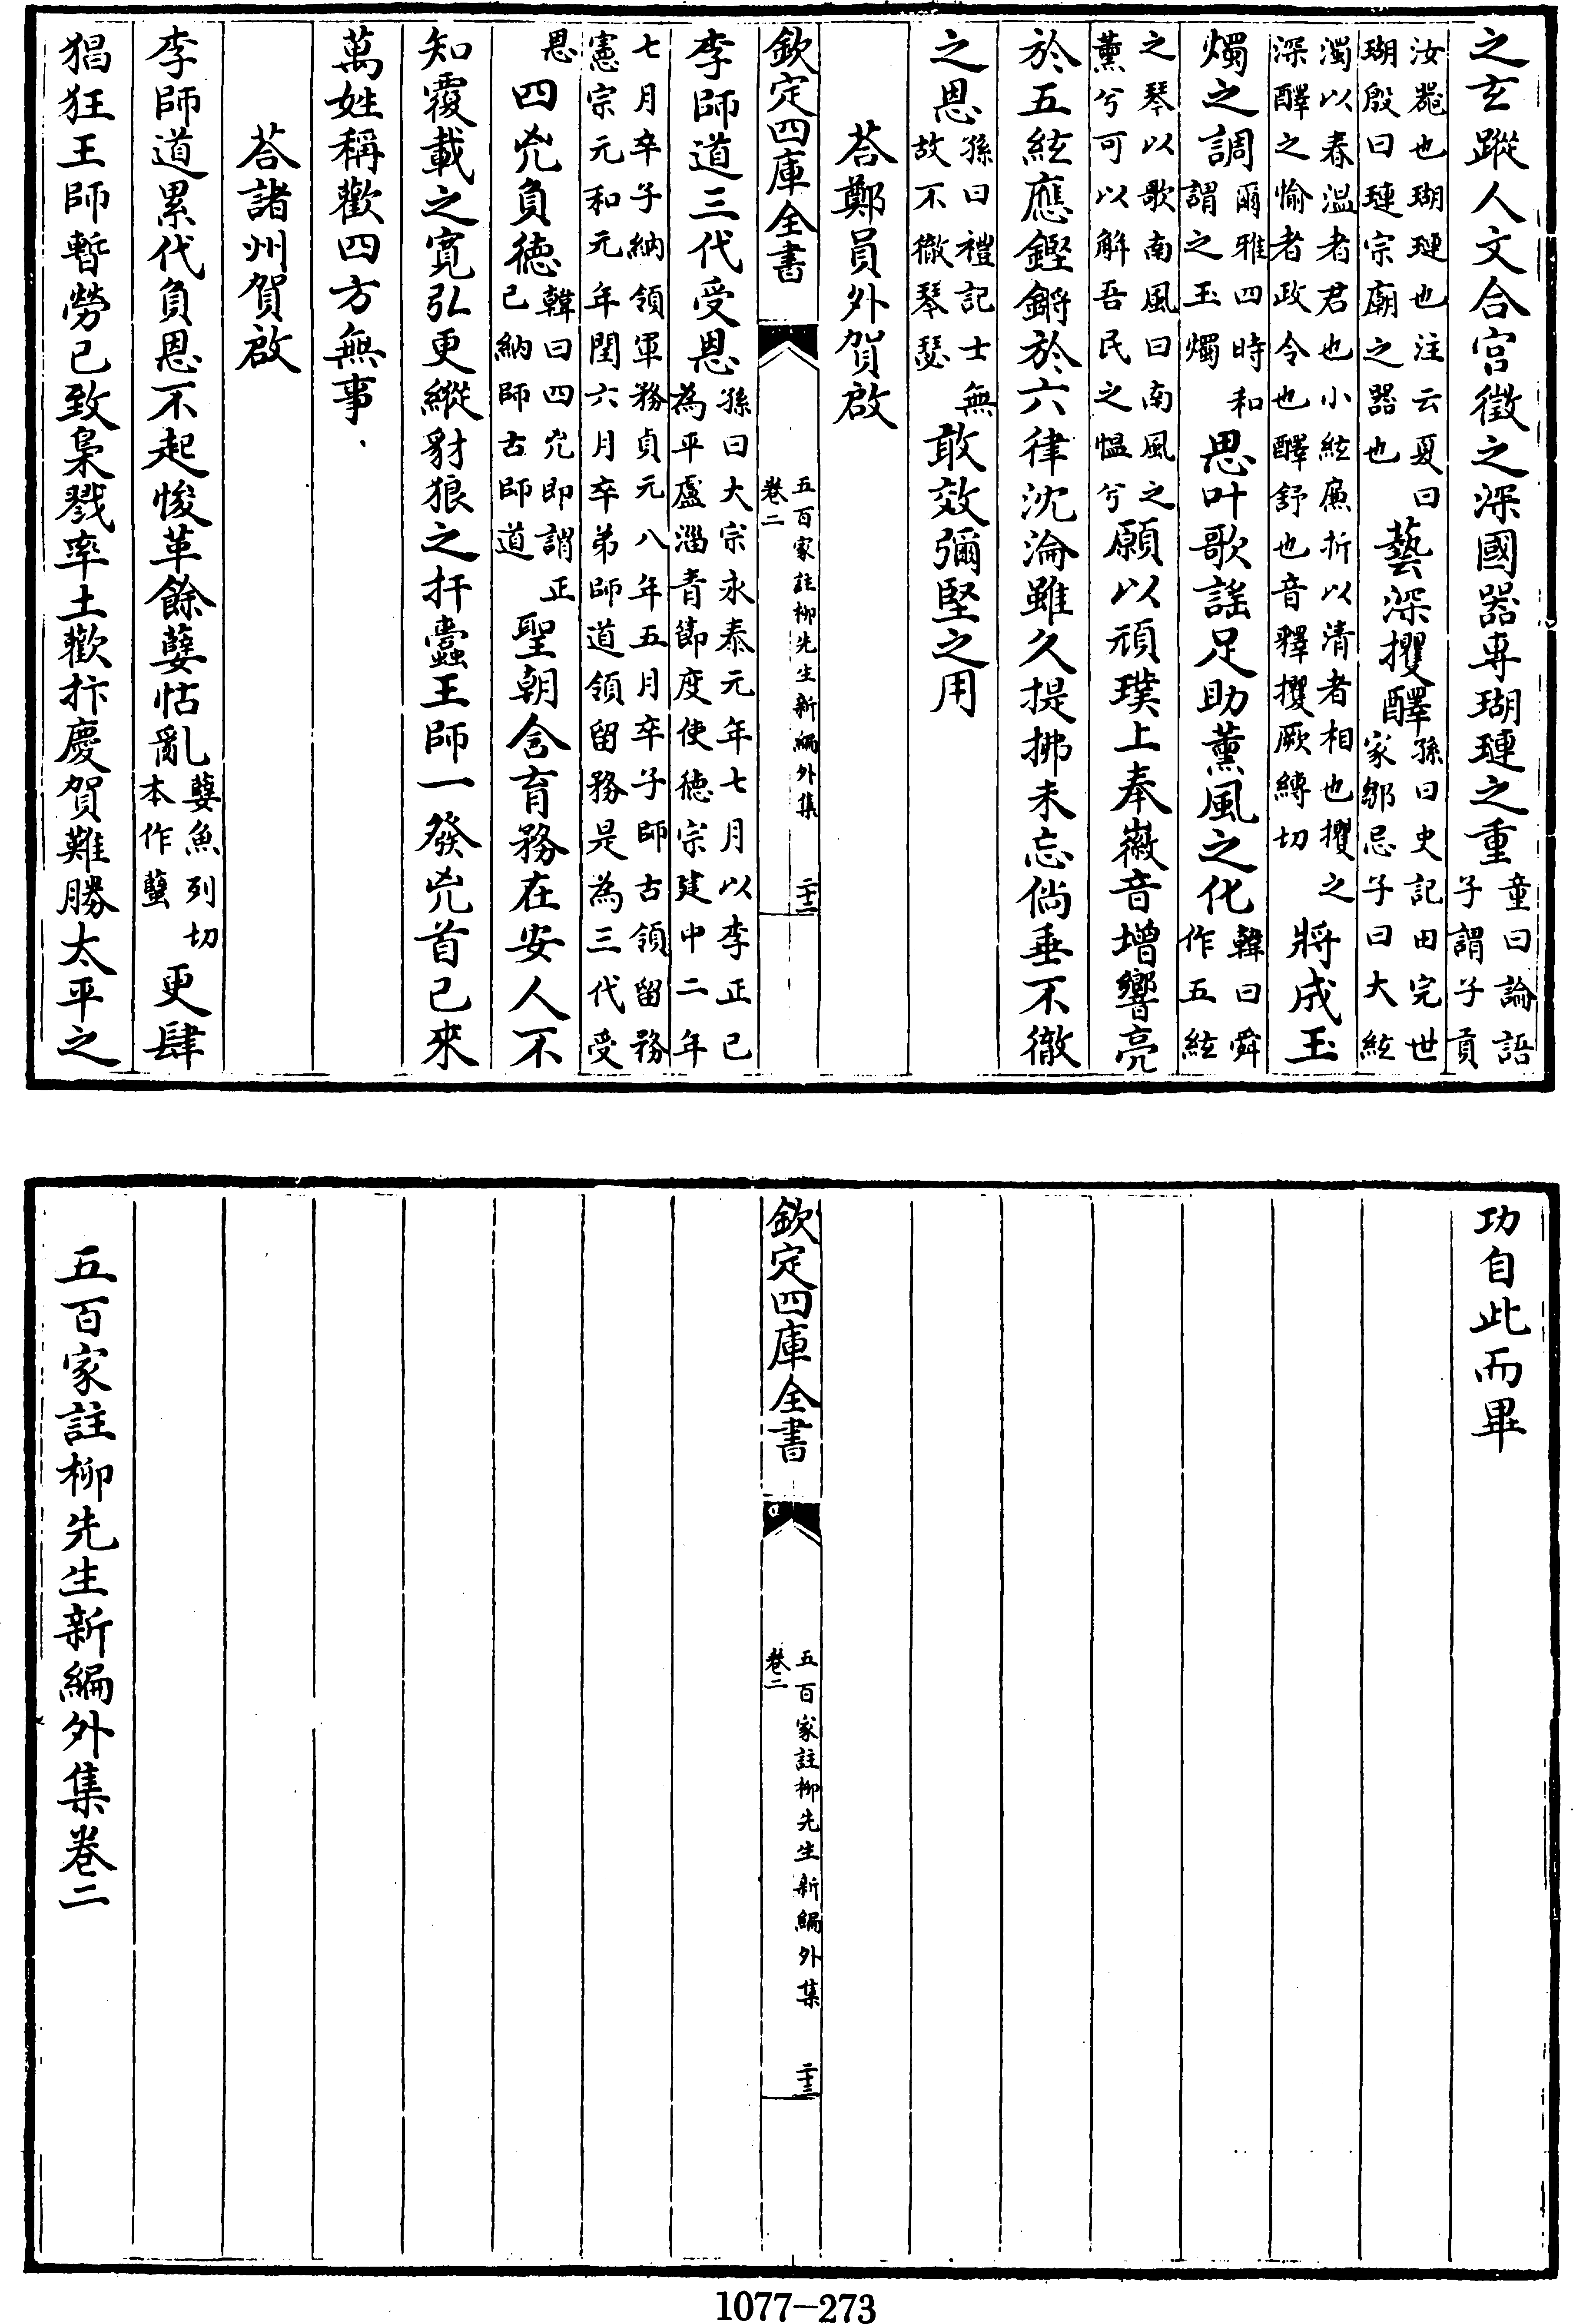 之玄蹤人文合宮徵之深國器專瑚璉之重童曰論語子謂子貢
汝器也瑚璉也注云夏曰瑚殷曰璉宗廟之器也藝深攫醳孫曰史記田完世家鄒忌子曰大絃
濁以春溫者君也小絃廉折以清者相也攫之深醳之愉者政令也醳舒也音釋攫厥縛切將成玉
燭之調爾雅四時和謂之玉燭思叶歌謠足助薰風之化韓曰舜作五絃
之琴以歌南風曰南風之薰兮可以解吾民之慍兮願以頑璞上奉徽音增響亮
於五絃應鏗鏘於六律沈淪雖久提拂未忘倘垂不徹
之恩孫曰禮記士無故不徹琴瑟敢效彌堅之用
荅鄭員外賀啟
欽定四庫全書
五百家註柳先生新編外集
卷二
二十二
李師道三代受恩孫曰大宗永泰元年七月以李正己為平盧淄青節度使德宗建中二年
七月卒子納領軍務貞元八年五月卒子師古領留務憲宗元和元年閏六月卒弟師道領留務是為三代受
恩四兇負德韓曰四兇即謂正己納師古師道聖朝含育務在安人不
知覆載之寛弘更縱豺狼之扞蠹王師一發兇首已來
萬姓稱歡四方無事
荅諸州賀啟
李師道累代負恩不起悛革餘孽怙亂孽魚列切本作蠥更肆
猖狂王師暫勞已致梟戮率土歡抃慶賀難勝太平之
功自此而畢
欽定四庫全書
五百家註柳先生新編外集
卷二
二十三
五百家註柳先生新編外集卷二
1077-273